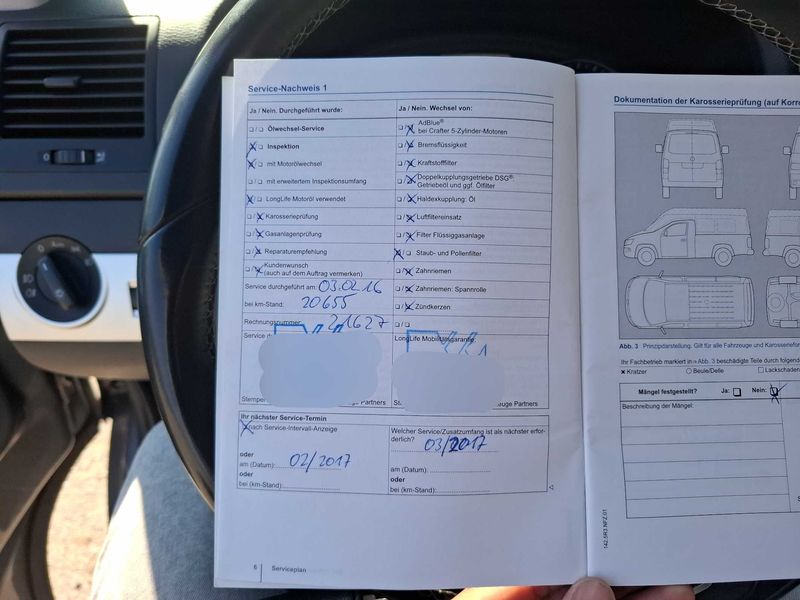 Service-Nachweis 1
Ja / Nein. Durchgeführt wurde:
Ölwechsel-Service
Inspektion
mit Motorölwechsel
mit erweitertem Inspektionsumfang
LongLife Motoröl verwendet
Karosserieprüfung
Gasanlagenprüfung
Reparaturempfehlung
Kundenwunsch
(auch auf dem Auftrag vermerken)
Service durchgeführt am 03.02.16
bei km-Stand: 20655
Rechnungsnummer: 21627
Service
Stempel
Partners
Ja / Nein. Wechsel von:
AdBlue®
bei Crafter 5-Zylinder-Motoren
Bremsflüssigkeit
Kraftstofffilter
Doppelkupplungsgetriebe DSG®:
Getriebeöl und ggf. Ölfilter
Haldexkupplung: Öl
Luftfiltereinsatz
Filter Flüssiggasanlage
Staub- und Pollenfilter
Zahnriemen
Zahnriemen: Spannrolle
Zündkerzen
LongLife Mobilitätsgarantie
Partners
Ihr nächster Service-Termin
nach Service-Intervall-Anzeige
oder
am (Datum): 02/2017
oder
bei (km-Stand):
Welcher Service/Zusatzumfang ist als nächster erfor-
derlich? 03/2017
am (Datum):
oder
bei (km-Stand):
6 Serviceplan
Dokumentation der Karosserieprüfung (auf Korro
Abb. 3 Prinzipdarstellung. Gilt für alle Fahrzeuge und Karosseriefor
Ihr Fachbetrieb markiert in Abb. 3 beschädigte Teile durch folgend
Kratzer Beule/Delle Lackschaden
Mängel festgestellt? Ja: Nein:
Beschreibung der Mängel:
142.5R3.NFZ.01